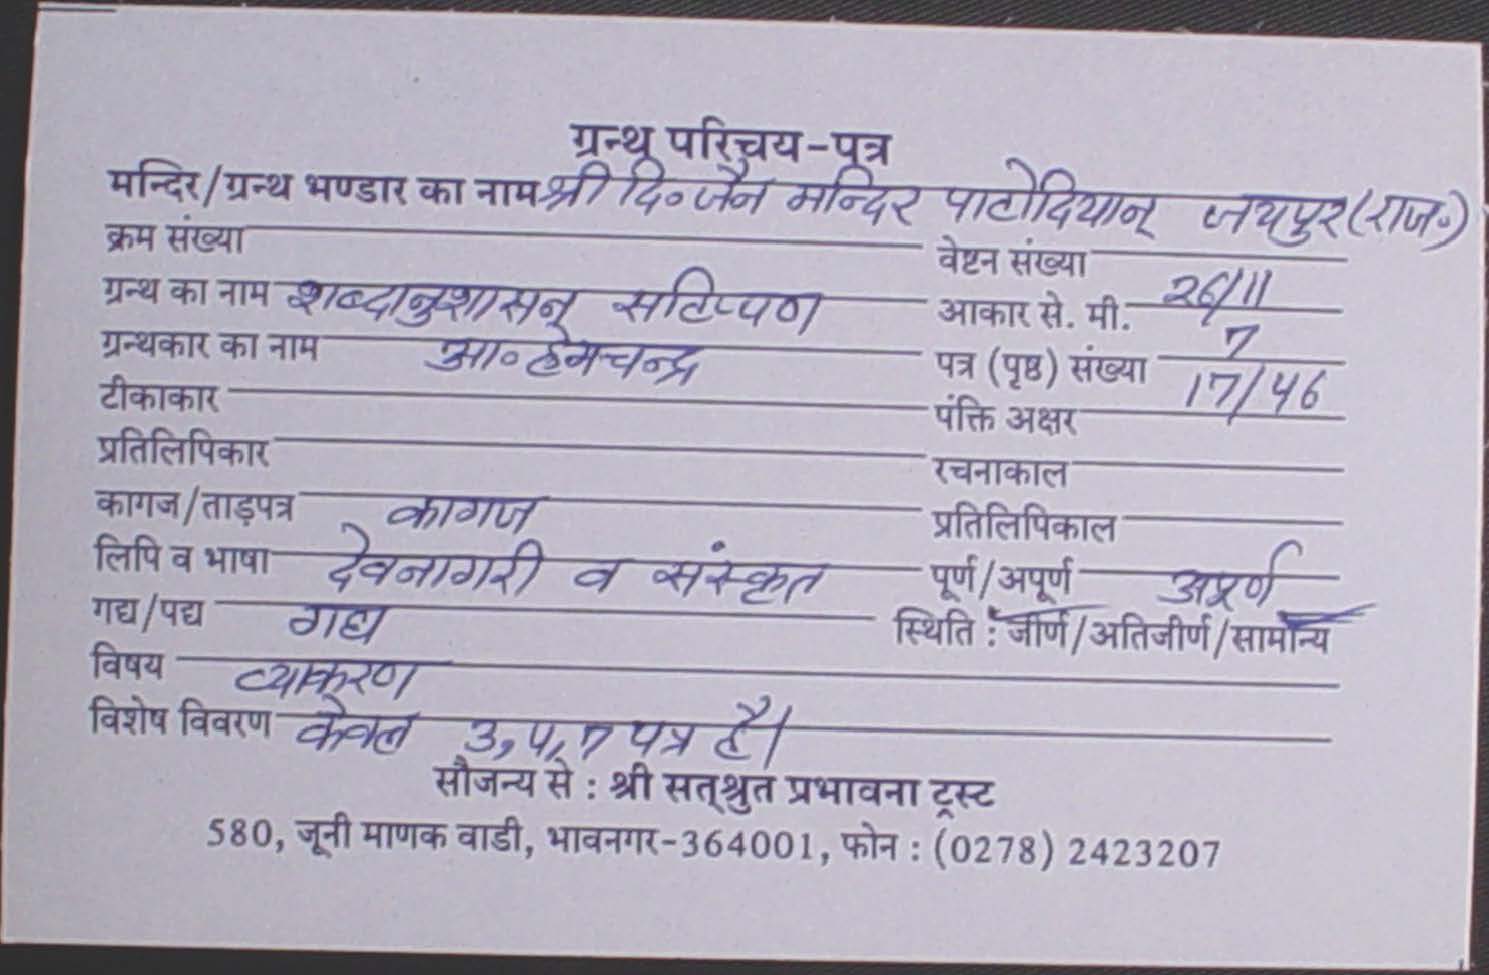 ग्रन्थ परिचय-पत्र
मन्दिर/ग्रन्थ भण्डार का नाम श्री दि॰ जैन मन्दिर पाटोदियान् जयपुर (राज॰)
क्रम संख्या वेष्टन संख्या
ग्रन्थ का नाम शब्दानुशासन सटिप्पण आकार से. मी. 26/11
ग्रन्थकार का नाम आ॰ हेमचन्द्र पत्र (पृष्ठ) संख्या 7
टीकाकार पंक्ति अक्षर 17/46
प्रतिलिपिकार रचनाकाल
कागज/ताड़पत्र कागज प्रतिलिपिकाल
लिपि व भाषा देवनागरी व संस्कृत पूर्ण/अपूर्ण अपूर्ण
गद्य/पद्य गद्य स्थिति : जीर्ण/अतिजीर्ण/सामान्य
विषय व्याकरण
विशेष विवरण केवल 3, 5, 7 पत्र है।
सौजन्य से : श्री सत्श्रुत प्रभावना ट्रस्ट
580, जूनी माणक वाडी, भावनगर-364001, फोन : (0278) 2423207